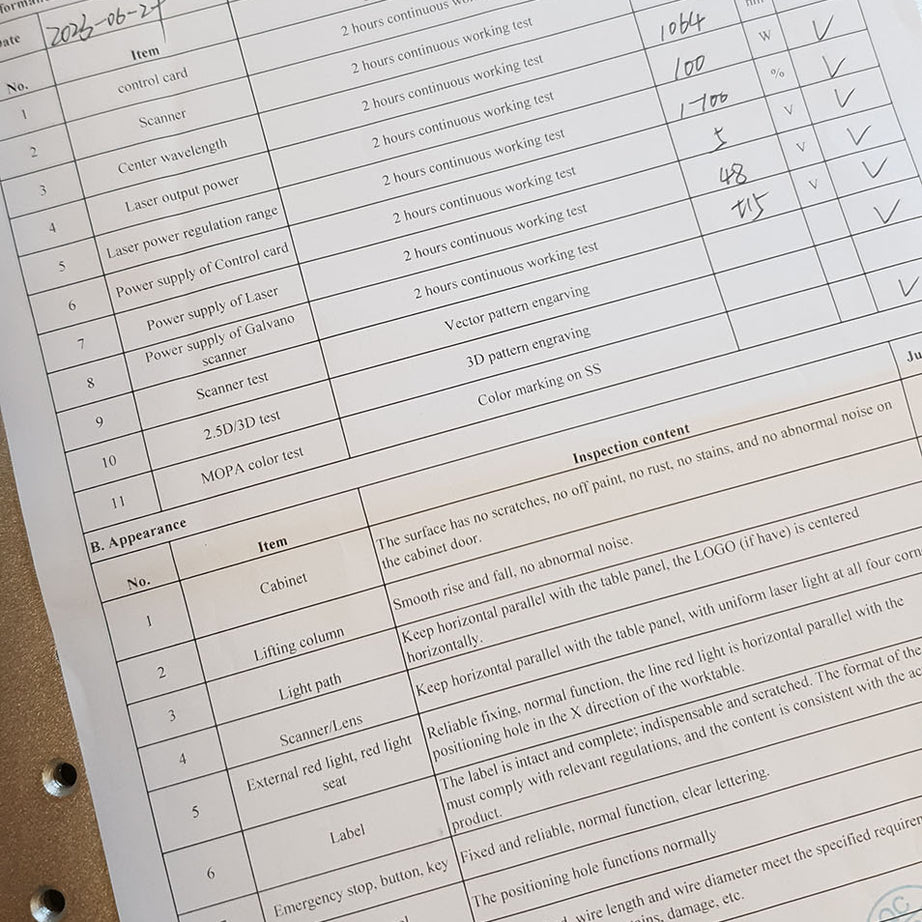 2 hours continuous
Item
No.
1 control card 2 hours continuous working test 1064 nm
2 Scanner 2 hours continuous working test 100 W ✓
3 Center wavelength 2 hours continuous working test 1-100 % ✓
4 Laser output power 2 hours continuous working test 5 V ✓
5 Laser power regulation range 2 hours continuous working test 48 V ✓
6 Power supply of Control card 2 hours continuous working test ±15 V ✓
7 Power supply of Laser 2 hours continuous working test ✓
8 Power supply of Galvano
scanner
Vector pattern engarving ✓
9 Scanner test 3D pattern engraving
10 2.5D/3D test Color marking on SS
11 MOPA color test
B. Appearance
No. Item Inspection content
1 Cabinet The surface has no scratches, no off paint, no rust, no stains, and no abnormal noise on
the cabinet door.
2 Lifting column Smooth rise and fall, no abnormal noise.
3 Light path Keep horizontal parallel with the table panel, the LOGO (if have) is centered
horizontally.
4 Scanner/Lens Keep horizontal parallel with the table panel, with uniform laser light at all four
5 External red light, red light
seat
Reliable fixing, normal function, the line red light is horizontal parallel with the
positioning hole in the X direction of the worktable.
6 Label The label is intact and complete; indispensable and scratched. The format of the
must comply with relevant regulations, and the content is consistent with the
product.
Emergency stop, button, key Fixed and reliable, normal function, clear lettering.
The positioning hole functions normally
wire length and wire diameter meet the specified
damage, etc.